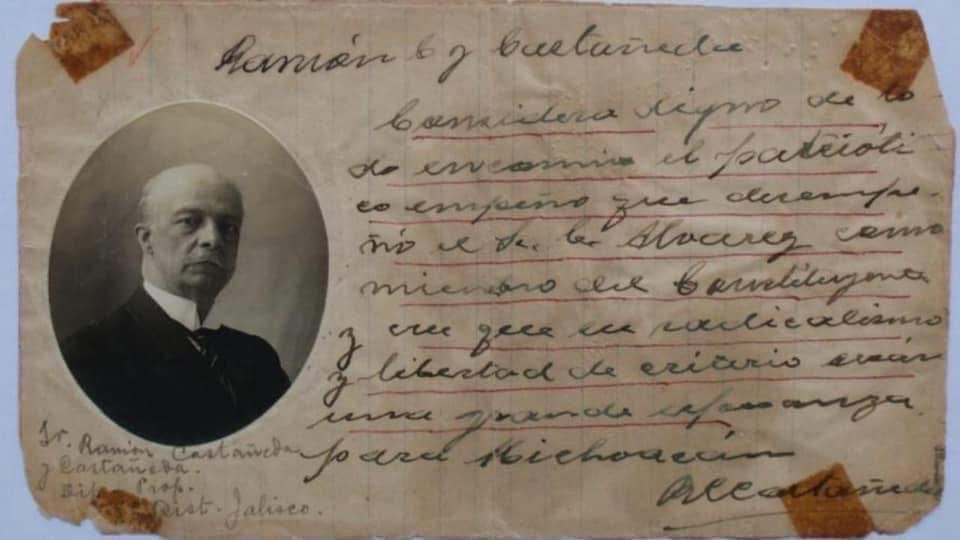 Ramón C y Castañeda
Considera digno de to
do encomio el patrióti
co empeño que desempe-
ñó el Sr. Lic. Alvarez como
miembro del Constituyente
y cree que su radicalismo
y libertad de criterio serán
una grande esperanza
para Michoacán
RCCastañeda
Sr. Ramón Castañeda
y Castañeda.
Dip. Prop.
Dist. Jalisco.